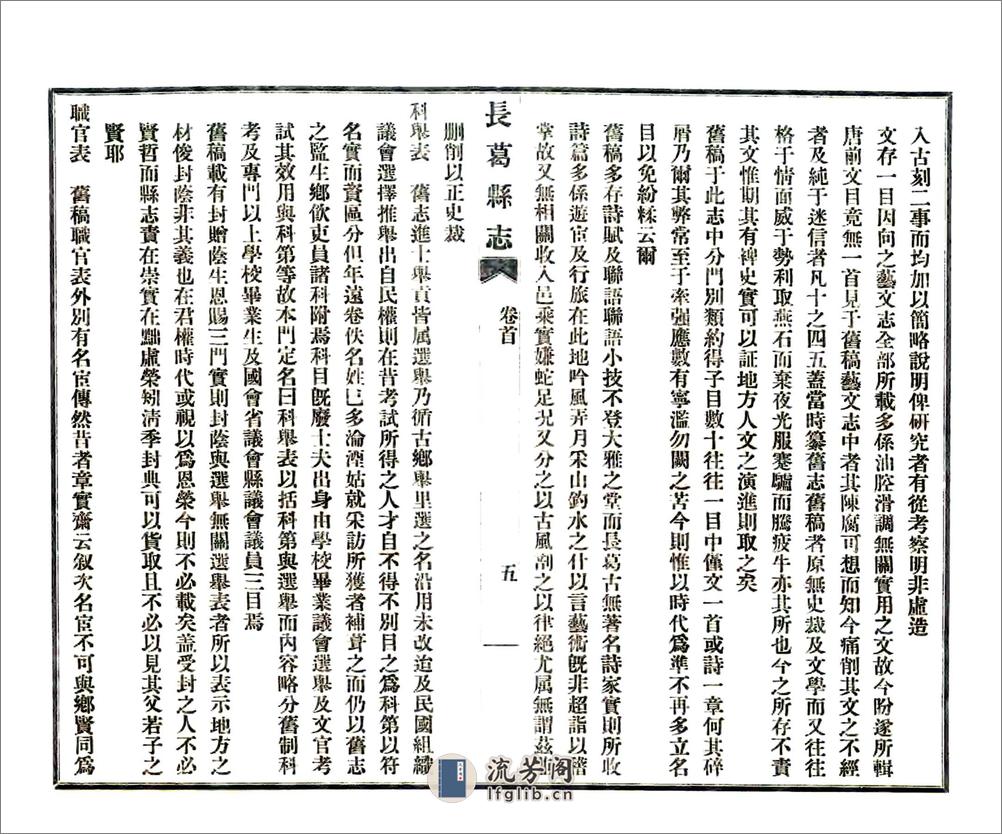 入古刻二事而均加以簡略說明俾研究者有從考察明非虛造
文存一目因向之藝文志全部所載多係油腔滑調無關實用之文故今盼遂所輯
唐前文目竟無一首見于舊稿藝文志中者其陳腐可想而知今痛削其文之不經
者及純于迷信者凡十之四五蓋當時纂舊志舊稿者原無史裁及文學而又往往
格于情面威于勢利取燕石而棄夜光服蹇驢而騰疲牛亦其所也今之所存不責
其文惟期其有裨史實可以証地方人文之演進則取之矣
舊稿于此志中分門別類約得子目數十往往一目中僅文一首或詩一章何其碎
屑乃爾其弊常至于牽强應數有寧濫勿闕之苦今則惟以時代爲準不再多立名
目以免紛糅云爾
舊稿多存詩賦及聯語聯語小技不登大雅之堂而長葛古無著名詩家實則所收
詩篇多係遊宦及行旅在此地吟風弄月采山釣水之什以言藝術旣非超詣以諧
掌故又無相關收入邑乘實嫌蛇足况又分之以古風副之以律絕尤属無謂茲
長葛縣志
卷首
五
刪削以正史裁
科舉表 舊志進士舉貢皆属選舉乃循古鄉舉里選之名沿用未改迨及民國組織
議會選擇推舉出自民權則在昔考試所得之人才自不得不別目之爲科第以符
名實而資區分但年遠卷佚名姓已多淪湮姑就采訪所獲者補葺之而仍以舊志
之監生鄉飲吏員諸科附焉科目旣廢士大夫出身由學校畢業議會選舉及文官考
試其效用與科第等故本門定名曰科舉表以括科第與選舉而内容略分舊制科
考及專門以上學校畢業生及國會省議會縣議會議員三目焉
舊稿載有封贈蔭生恩賜三門實則封蔭與選舉無關選舉表者所以表示地方之
材俊封蔭非其義也在君權時代或視以爲恩榮今則不必載矣盖受封之人不必
賢哲而縣志責在崇實在黜虛榮矧淸季封典可以貨取且不必以見其父若子之
賢耶
職官表 舊稿職官表外別有名宦傳然昔者章實齋云叙次名宦不可與鄉賢同爲
流芳阁
lfglib.cn